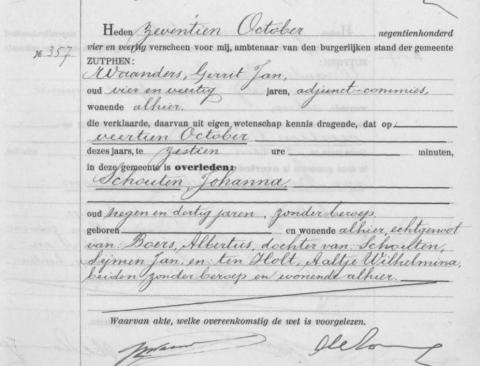 Heden zeventien October negentienhonderd
№ 357
vier en veertig verscheen voor mij, ambtenaar van den burgerlijken stand der gemeente
ZUTPHEN:
Waanders, Gerrit Jan,
oud vier en veertig jaren, adjunct-commies,
wonende alhier.
die verklaarde, daarvan uit eigen wetenschap kennis dragende, dat op
veertien October
dezes jaars, te zestien ure minuten,
in deze gemeente is overleden:
Schouten, Johanna,
oud negen en dertig jaren, zonder beroep
geboren en wonende alhier, echtgenoot
van: Boers, Albertus, dochter van: Scholten,
Sijmen Jan, en: ten Holt, Aaltje Wilhelmina,
beiden zonder beroep en wonende alhier.
Waarvan akte, welke overeenkomstig de wet is voorgelezen.